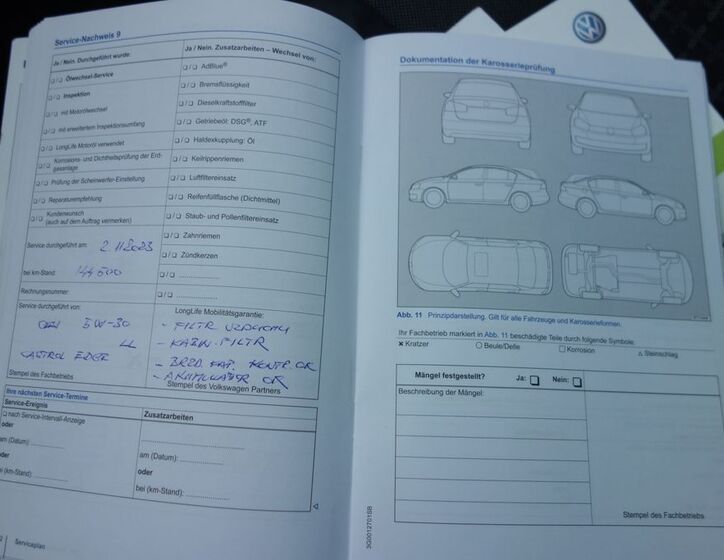 Service-Nachweis 9
Ja / Nein. Durchgeführt wurde:
Ja / Nein. Zusatzarbeiten – Wechsel von:
❑/❑ Ölwechsel-Service
❑/❑ AdBlue®
❑/❑ Inspektion
❑/❑ Bremsflüssigkeit
❑/❑ mit Motorölwechsel
❑/❑ Dieselkraftstofffilter
❑/❑ mit erweitertem Inspektionsumfang
❑/❑ Getriebeöl: DSG®, ATF
❑/❑ LongLife Motoröl verwendet
❑/❑ Haldexkupplung: Öl
❑/❑ Korrosions- und Dichtheitsprüfung der Erd-
gasanlage
❑/❑ Keilrippenriemen
❑/❑ Prüfung der Scheinwerfer-Einstellung
❑/❑ Luftfiltereinsatz
❑/❑ Reparaturempfehlung
❑/❑ Reifenfüllflasche (Dichtmittel)
❑/❑ Kundenwunsch
(auch auf dem Auftrag vermerken)
❑/❑ Staub- und Pollenfiltereinsatz
❑/❑ Zahnriemen
Service durchgeführt am: 2.11.2023
❑/❑ Zündkerzen
bei km-Stand: 144500
❑/❑
Rechnungsnummer:
❑/❑
Service durchgeführt von:
LongLife Mobilitätsgarantie:
5W-30
LL
CASTROL EDGE
- FILTR
- KABIN. FILTR
OK
OK
Stempel des Fachbetriebs
Stempel des Volkswagen Partners
Ihre nächsten Service-Termine
Service-Ereignis
Zusatzarbeiten
❑ nach Service-Intervall-Anzeige
oder
am (Datum):
oder
bei (km-Stand):
am (Datum):
oder
bei (km-Stand):
Serviceplan
Dokumentation der Karosserieprüfung
Abb. 11 Prinzipdarstellung. Gilt für alle Fahrzeuge und Karosserieformen.
Ihr Fachbetrieb markiert in Abb. 11 beschädigte Teile durch folgende Symbole:
× Kratzer ○ Beule/Delle □ Korrosion △ Steinschlag
Mängel festgestellt? Ja: ❑ Nein: ❑
Beschreibung der Mängel:
Stempel des Fachbetriebs
3G0012701SB